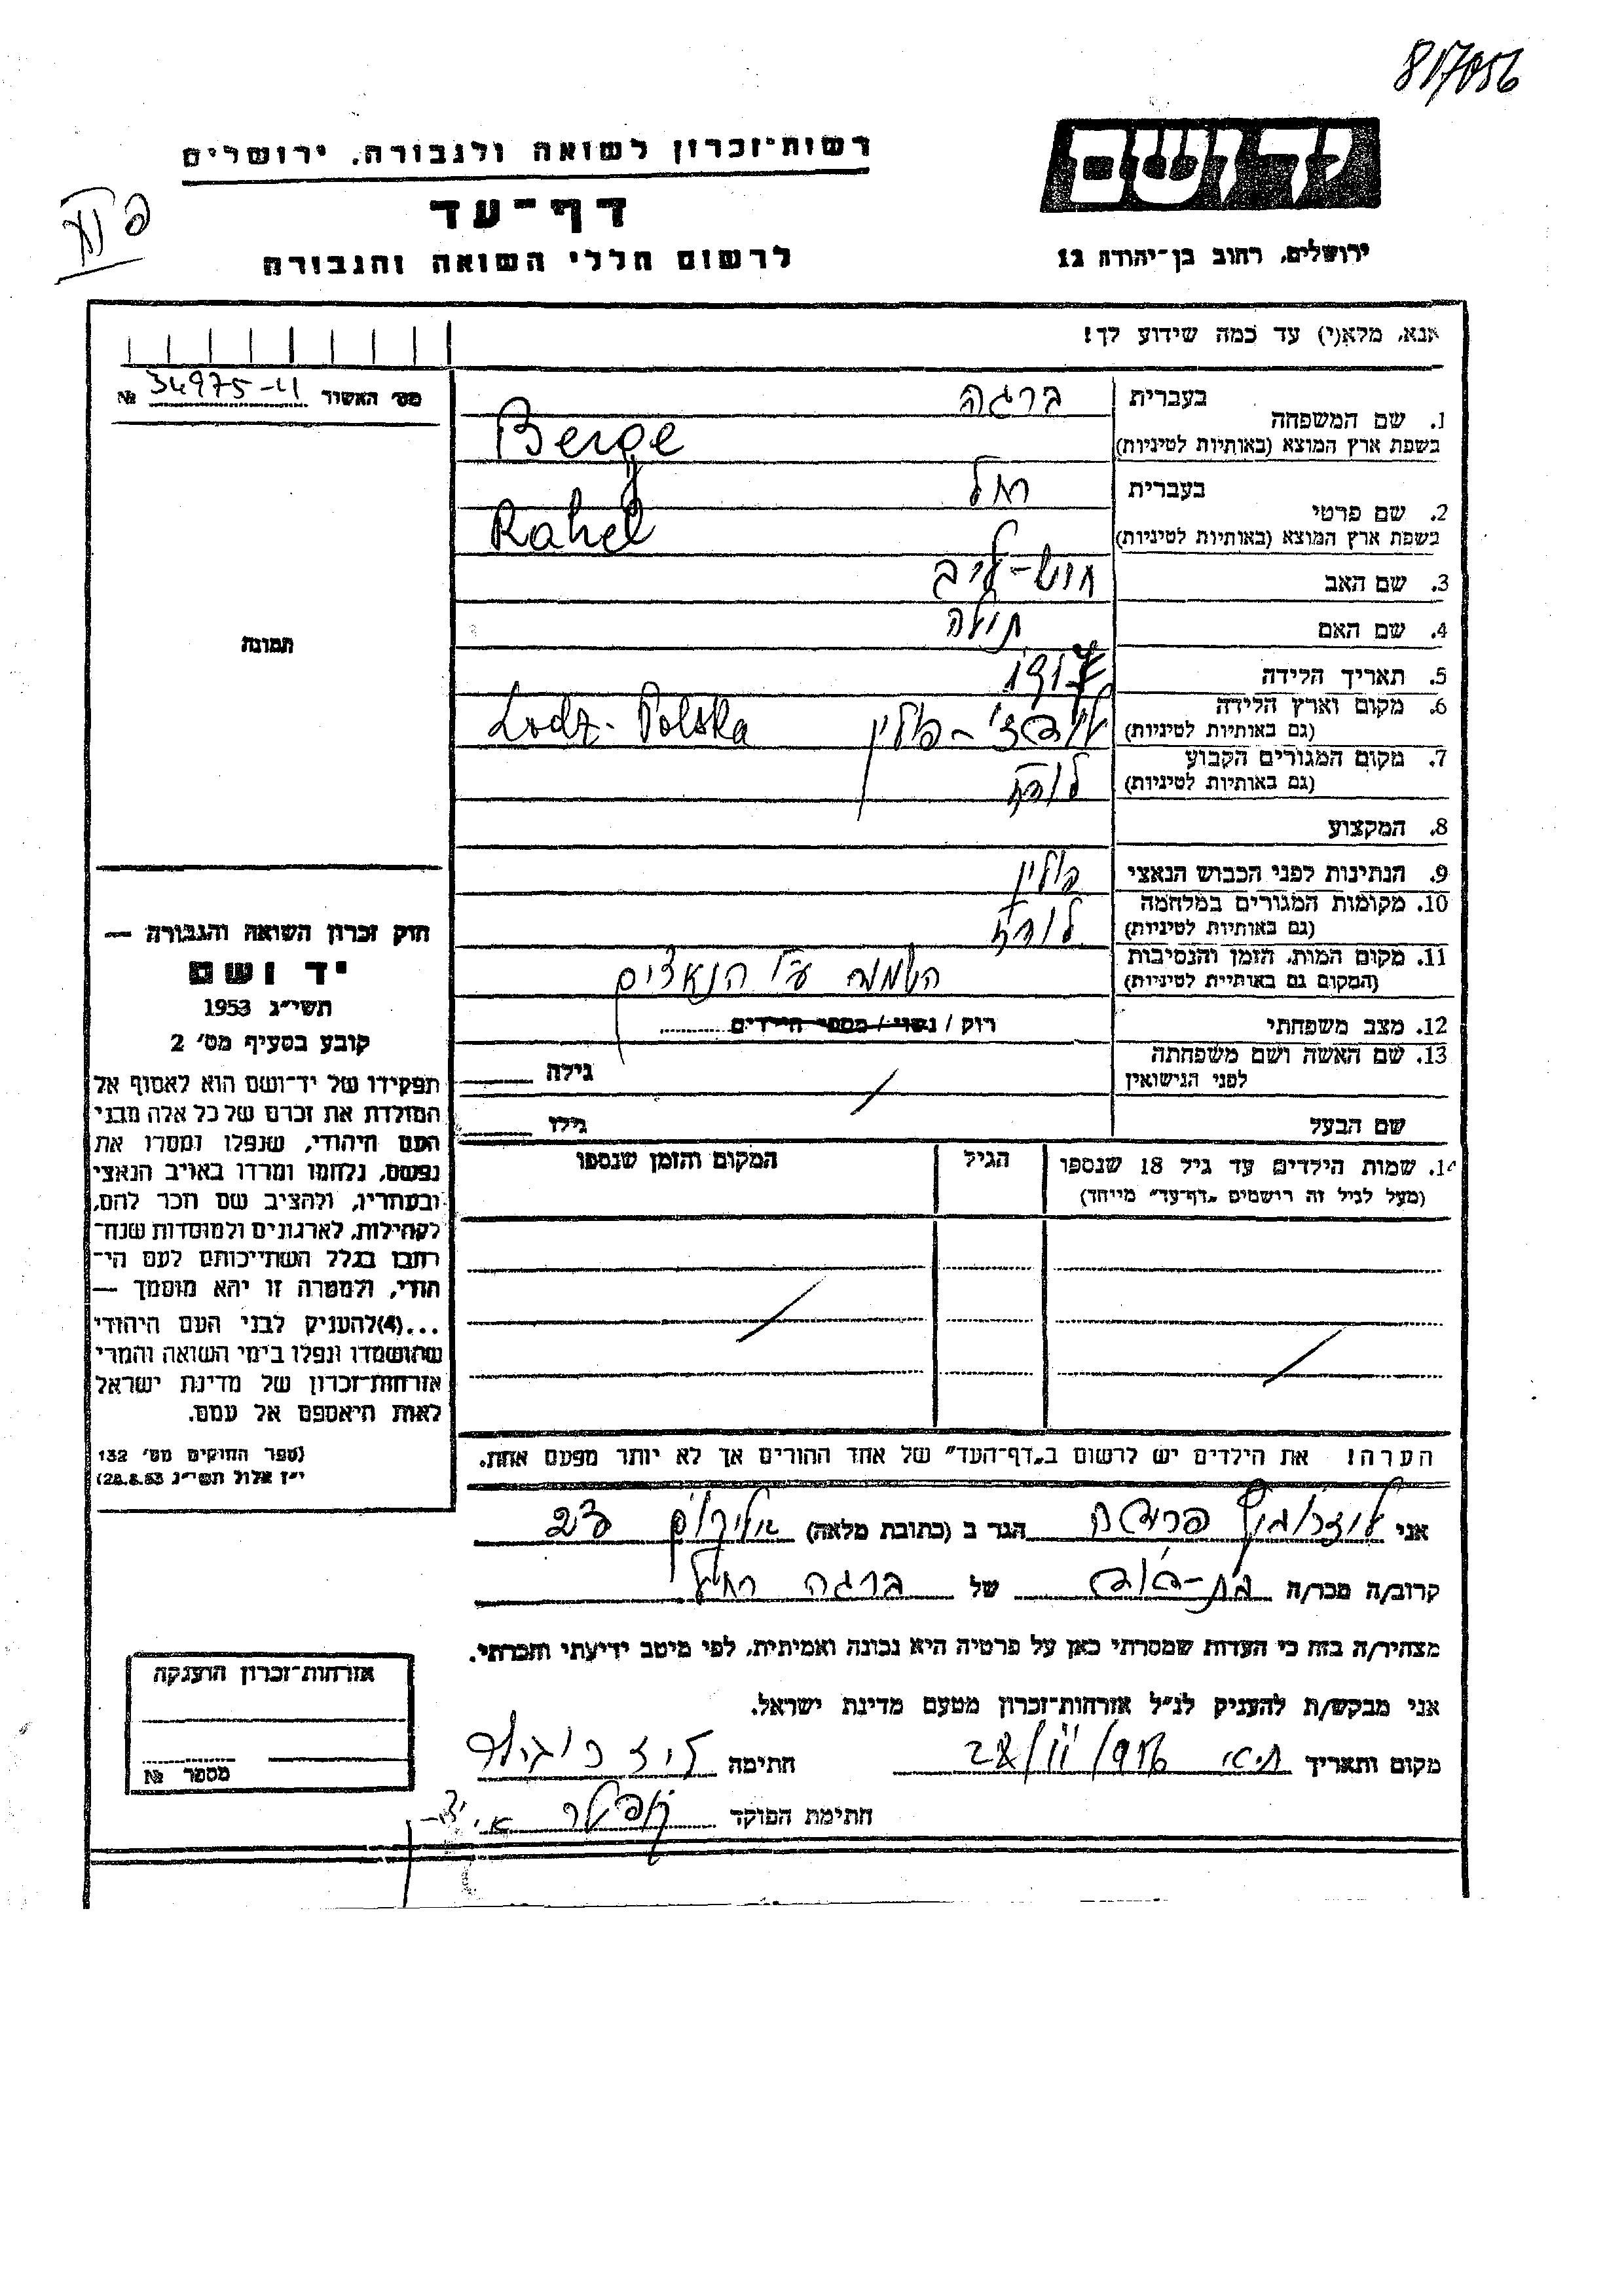 817056
יד ושם
רשות־זכרון לשואה ולגבורה, ירושלים
דף־עד
לרשום חללי השואה והגבורה
ירושלים, רחוב בן־יהודה 12
אנא, מלא(י) עד כמה שידוע לך!
מס׳ האשור 34975-4 №
1. שם המשפחה
בעברית ברגה
בשפת ארץ המוצא (באותיות לטיניות) Berge
2. שם פרטי
בעברית רחל
בשפת ארץ המוצא (באותיות לטיניות) Rahel
3. שם האב
4. שם האם
5. תאריך הלידה 1917
6. מקום וארץ הלידה
(גם באותיות לטיניות) פולין Lodz - Polska
7. מקום המגורים הקבוע
(גם באותיות לטיניות) לודז
8. המקצוע
9. הנתינות לפני הכבוש הנאצי פולין
10. מקומות המגורים במלחמה
(גם באותיות לטיניות) לודז
11. מקום המות, הזמן והנסיבות
(המקום גם באותיית לטיניות) ע״י הנאצים
12. מצב משפחתי רוק / נשוי / מספר הילדים
13. שם האשה ושם משפחתה
לפני הנישואין גילה
שם הבעל גילו
14. שמות הילדים עד גיל 18 שנספו
(מעל לגיל זה רישמים „דף־עד״ מייחד)
הגיל
המקום והזמן שנספו
הערה! את הילדים יש לרשום ב„דף־העד״ של אחד ההורים אך לא יותר מפעם אחת.
תמונה
חוק זכרון השואה והגבורה —
יד ושם
תשי״ג 1953
קובע בסעיף מס׳ 2
תפקידו של יד־ושם הוא לאסוף אל
המולדת את זכרם של כל אלה מבני
העם היהודי, שנפלו ומסרו את
נפשם, נלחמו ומרדו באויב הנאצי
ובעוזריו, ולהציב שם וזכר להם,
לקהילות, לארגונים ולמוסדות שנח־
רחבו בגלל השתייכותם לעם הי־
הודי, ולמטרה זו יהא מוסמך —
...(4)להעניק לבני העם היהודי
שהושמדו ונפלו בימי השואה והמרי
אזרחות־זכרון של מדינת ישראל
לאות היאספם אל עמם.
(ספר החוקים מס׳ 132
י״ז אלול תשי״ג 28.8.53)
אני הגר ב (כתובת מלאה)
קרוב/ה מכר/ה בת-דוד של ברגה רחל
מצהיר/ה בזה כי העדות שמסרתי כאן על פרטיה היא נכונה ואמיתית, לפי מיטב ידיעתי והכרתי.
אני מבקש/ת להעניק לנ״ל אזרחות־זכרון מטעם מדינת ישראל.
מקום ותאריך חתימה
חתימת הפוקד
אזרחות־זכרון הוענקה
מספר №